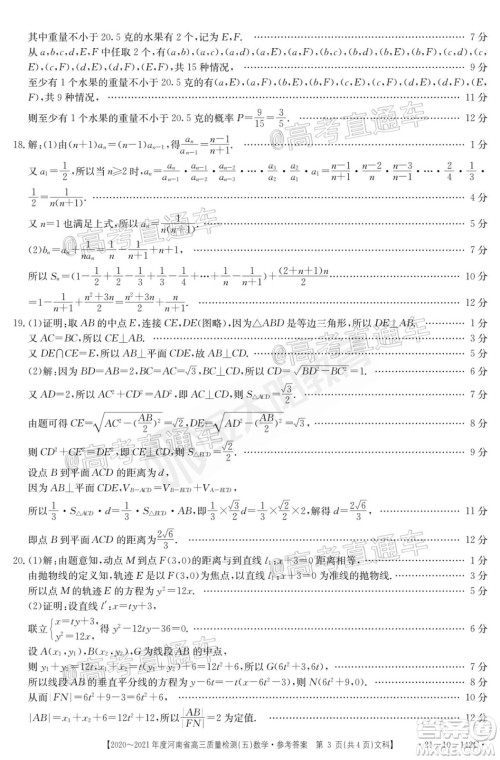 其中重量不小于20.5克的水果有2个，记为E，F. 7分
从a，b，c，d，E，F中任取2个，有(a，b)，(a，c)，(a，d)，(a，E)，(a，F)，(b，c)，(b，d)，(b，E)，(b，F)，(c，d)，(c，
E)，(c，F)，(d，E)，(d，F)，(E，F)，共15种情况， 9分
至少有1个水果的重量不小于20.5克的有(a，E)，(a，F)，(b，E)，(b，F)，(c，E)，(c，F)，(d，E)，(d，F)，(E，
F)，共9种情况， 11分
则至少有1个水果的重量不小于20.5克的概率P=9/15=3/5. 12分
18.解：(1)由(n+1)aₙ=(n−1)aₙ₋₁，得aₙ/aₙ₋₁=(n−1)/(n+1). 1分
又a₁=1/2，所以当n≥2时，aₙ=aₙ/aₙ₋₁·aₙ₋₁/aₙ₋₂·aₙ₋₂/aₙ₋₃·…·a₃/a₂·a₂/a₁·a₁=(n−1)/(n+1)·(n−2)/n·(n−3)/(n−1)·…·2/4·1/3·
1/2=1/(n(n+1)). 4分
又n=1也满足上式，所以aₙ=1/(n(n+1)). 5分
(2)bₙ=aₙ+1/(naₙ)=1/n−1/(n+1)+n+1， 7分
所以Sₙ=(1−1/2+1/2−1/3+…+1/n−1/(n+1))+(2+n+1)n/2 10分
=1−1/(n+1)+(n²+3n)/2=n/(n+1)+(n²+3n)/2. 12分
19.(1)证明：取AB的中点E，连接CE，DE(图略)，因为△ABD是等边三角形，所以DE⊥AB. 1分
又AC=BC，所以CE⊥AB. 3分
又DE∩CE=E，所以AB⊥平面CDE，故AB⊥CD. 5分
(2)解：因为BD=AB=2，BC=√3，BC⊥CD，所以CD=√(BD²−BC²)=1. 6分
又AD=2，所以AC²+CD²=AD²，所以AC⊥CD，所以S△ACD=√3/2. 7分
由题可得CE=√(AC²−(AB/2)²)=√2，DE=√(AD²−(AB/2)²)=√3. 8分
则CD²+CE²=DE²，即CD⊥CE，所以S△ECD=√2/2. 9分
设点B到平面ACD的距离为d，
因为AB⊥平面CDE，V_B−ACD=V_B−ECD+V_A−ECD，
所以1/3·S△ACD·d=1/3·S△ECD·AB，即1/3·√3/2·d=1/3·√2/2·2，解得d=2√6/3， 11分
即点B到平面ACD的距离为2√6/3. 12分
20.(1)解：由题意知，动点M到点F(3，0)的距离与到直线x=−3的距离相等. 1分
由抛物线的定义知，轨迹E是以F(3，0)为焦点，以直线x=−3为准线的抛物线. 3分
所以点M的轨迹E的方程为y²=12x. 4分
(2)证明：设直线l′：x=ty+3，
联立{x=ty+3，y²=12x，得y²−12ty−36=0. 6分
设A(x₁，y₁)，B(x₂，y₂)，G为线段AB的中点，
则y₁+y₂=12t，x₁+x₂=t(y₁+y₂)+6=12t²+6，所以G(6t²+3，6t). 8分
所以线段AB的垂直平分线的方程为y−6t=−t(x−6t²−3)，则N(6t²+9，0). 9分
从而|FN|=6t²+9−3=6t²+6. 10分
|AB|=x₁+x₂+6=12t²+12，所以|AB|/|FN|=2为定值. 12分
【2020～2021年度河南省高三质量检测(五)数学·参考答案 第3页(共4页)文科】
@高考直通车
@高考直通车
@高考直通车
@高考直通车